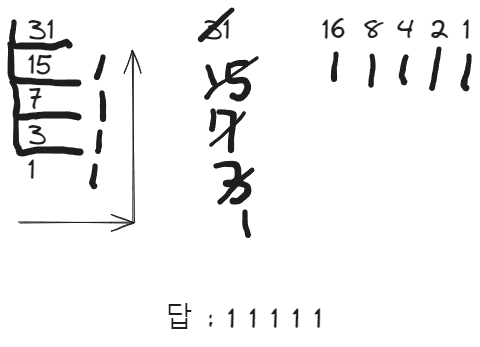 31
15 1
7 1
3 1
1 1
31
15
7
3
1
16 8 4 2 1
1 1 1 1 1
답 : 1 1 1 1 1